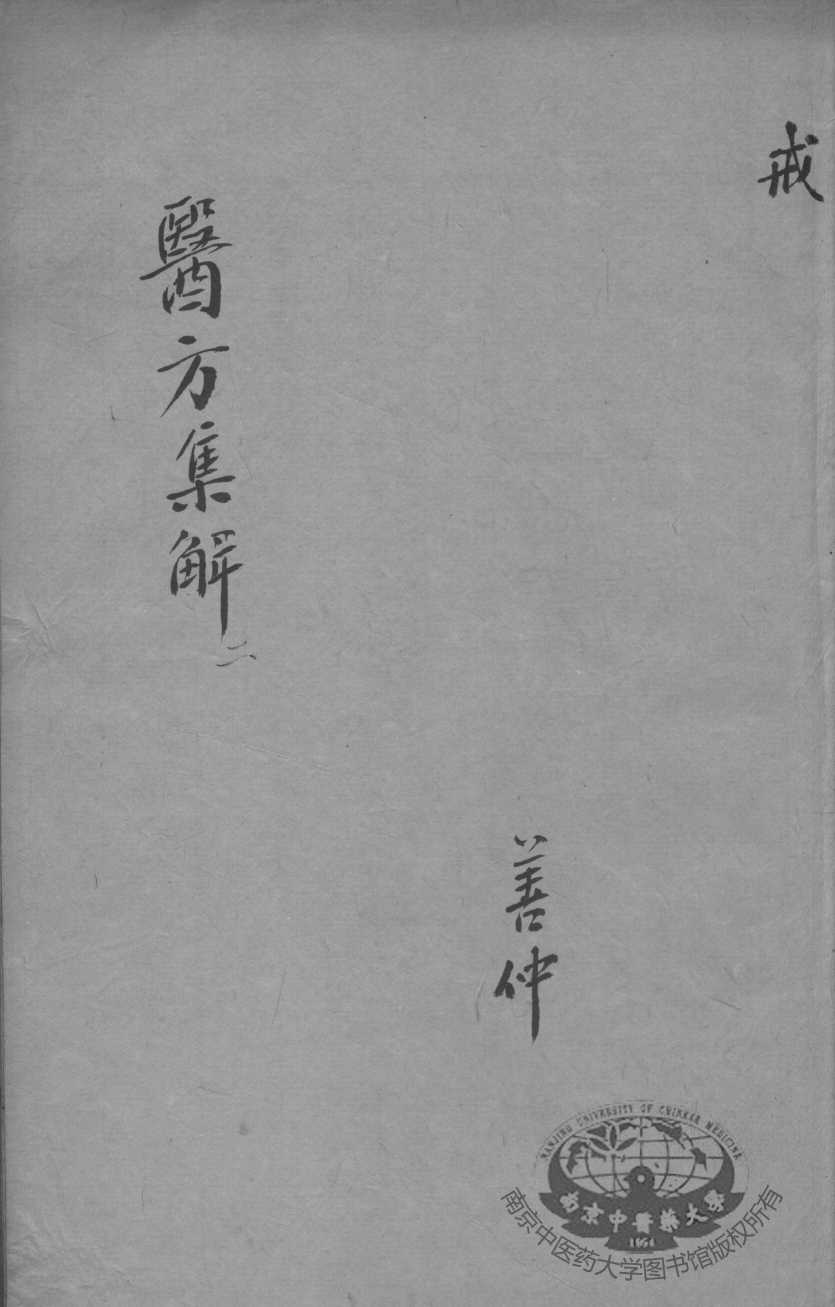 戒
醫方集解
二
善仲
NANJING UNIVERSITY OF CHINESE MEDICINE
南京中醫藥大學
1954
南京中医药大学图书馆版权所有